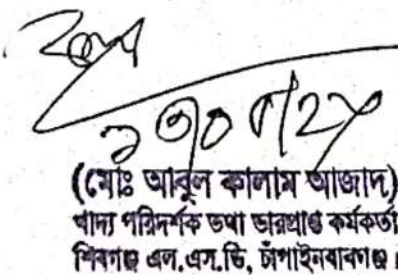 (মোঃ আবুল কালাম আজাদ)
খাদ্য পরিদর্শক তথা ভারপ্রাপ্ত কর্মকর্তা
শিবগঞ্জ এল.এস.ডি, চাঁপাইনবাবগঞ্জ।